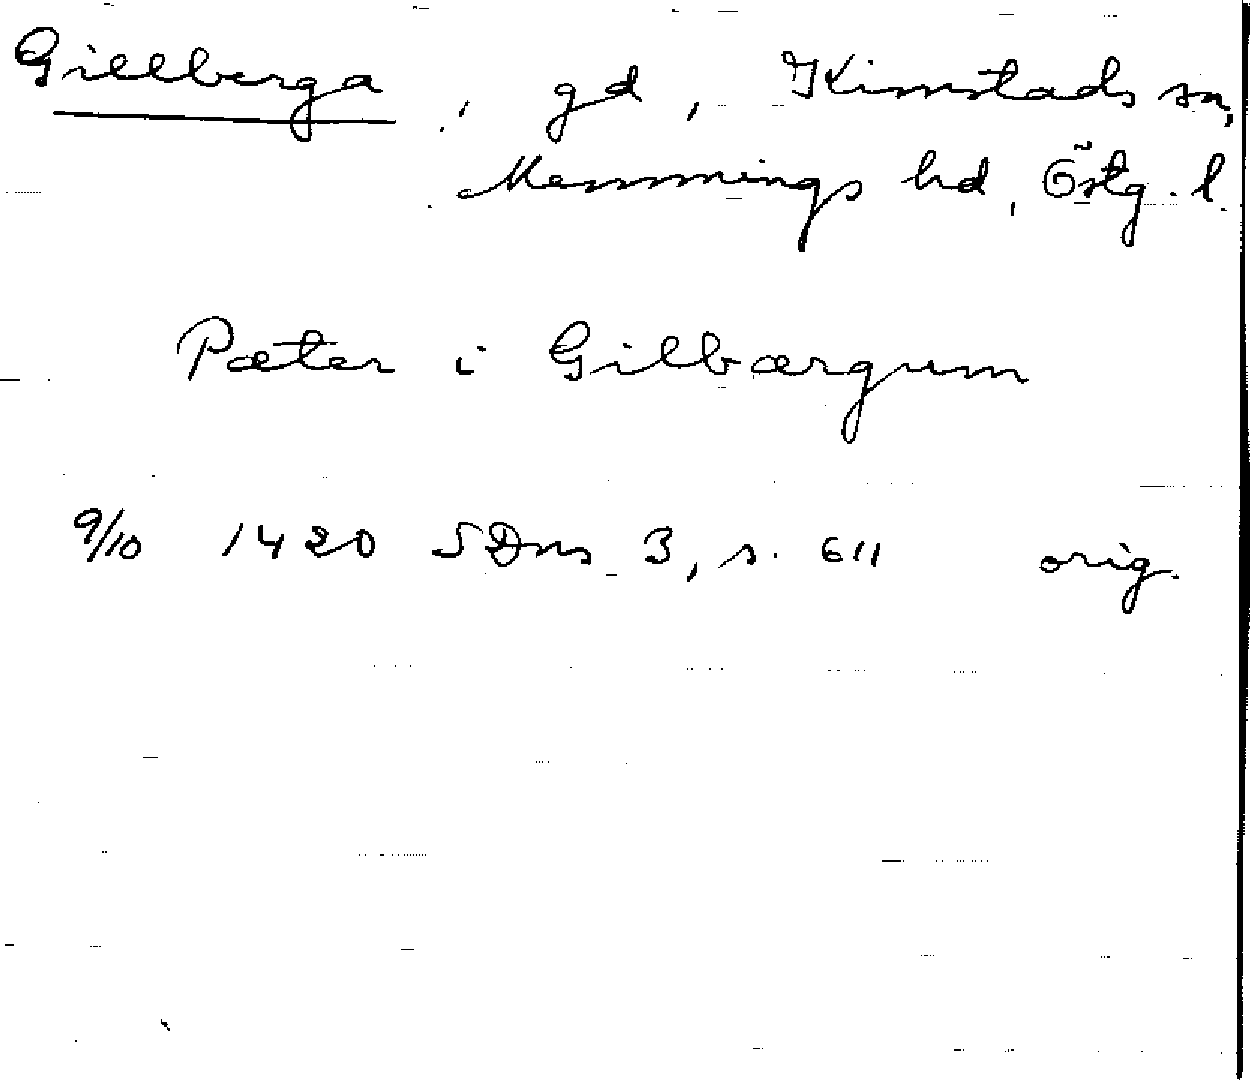 Gillberga, gd, Kimstads sn,
Memmings hd, Östg. l.
Pæter i Gilbærgum
9/10 1420 SDns 3, s. 611 orig.